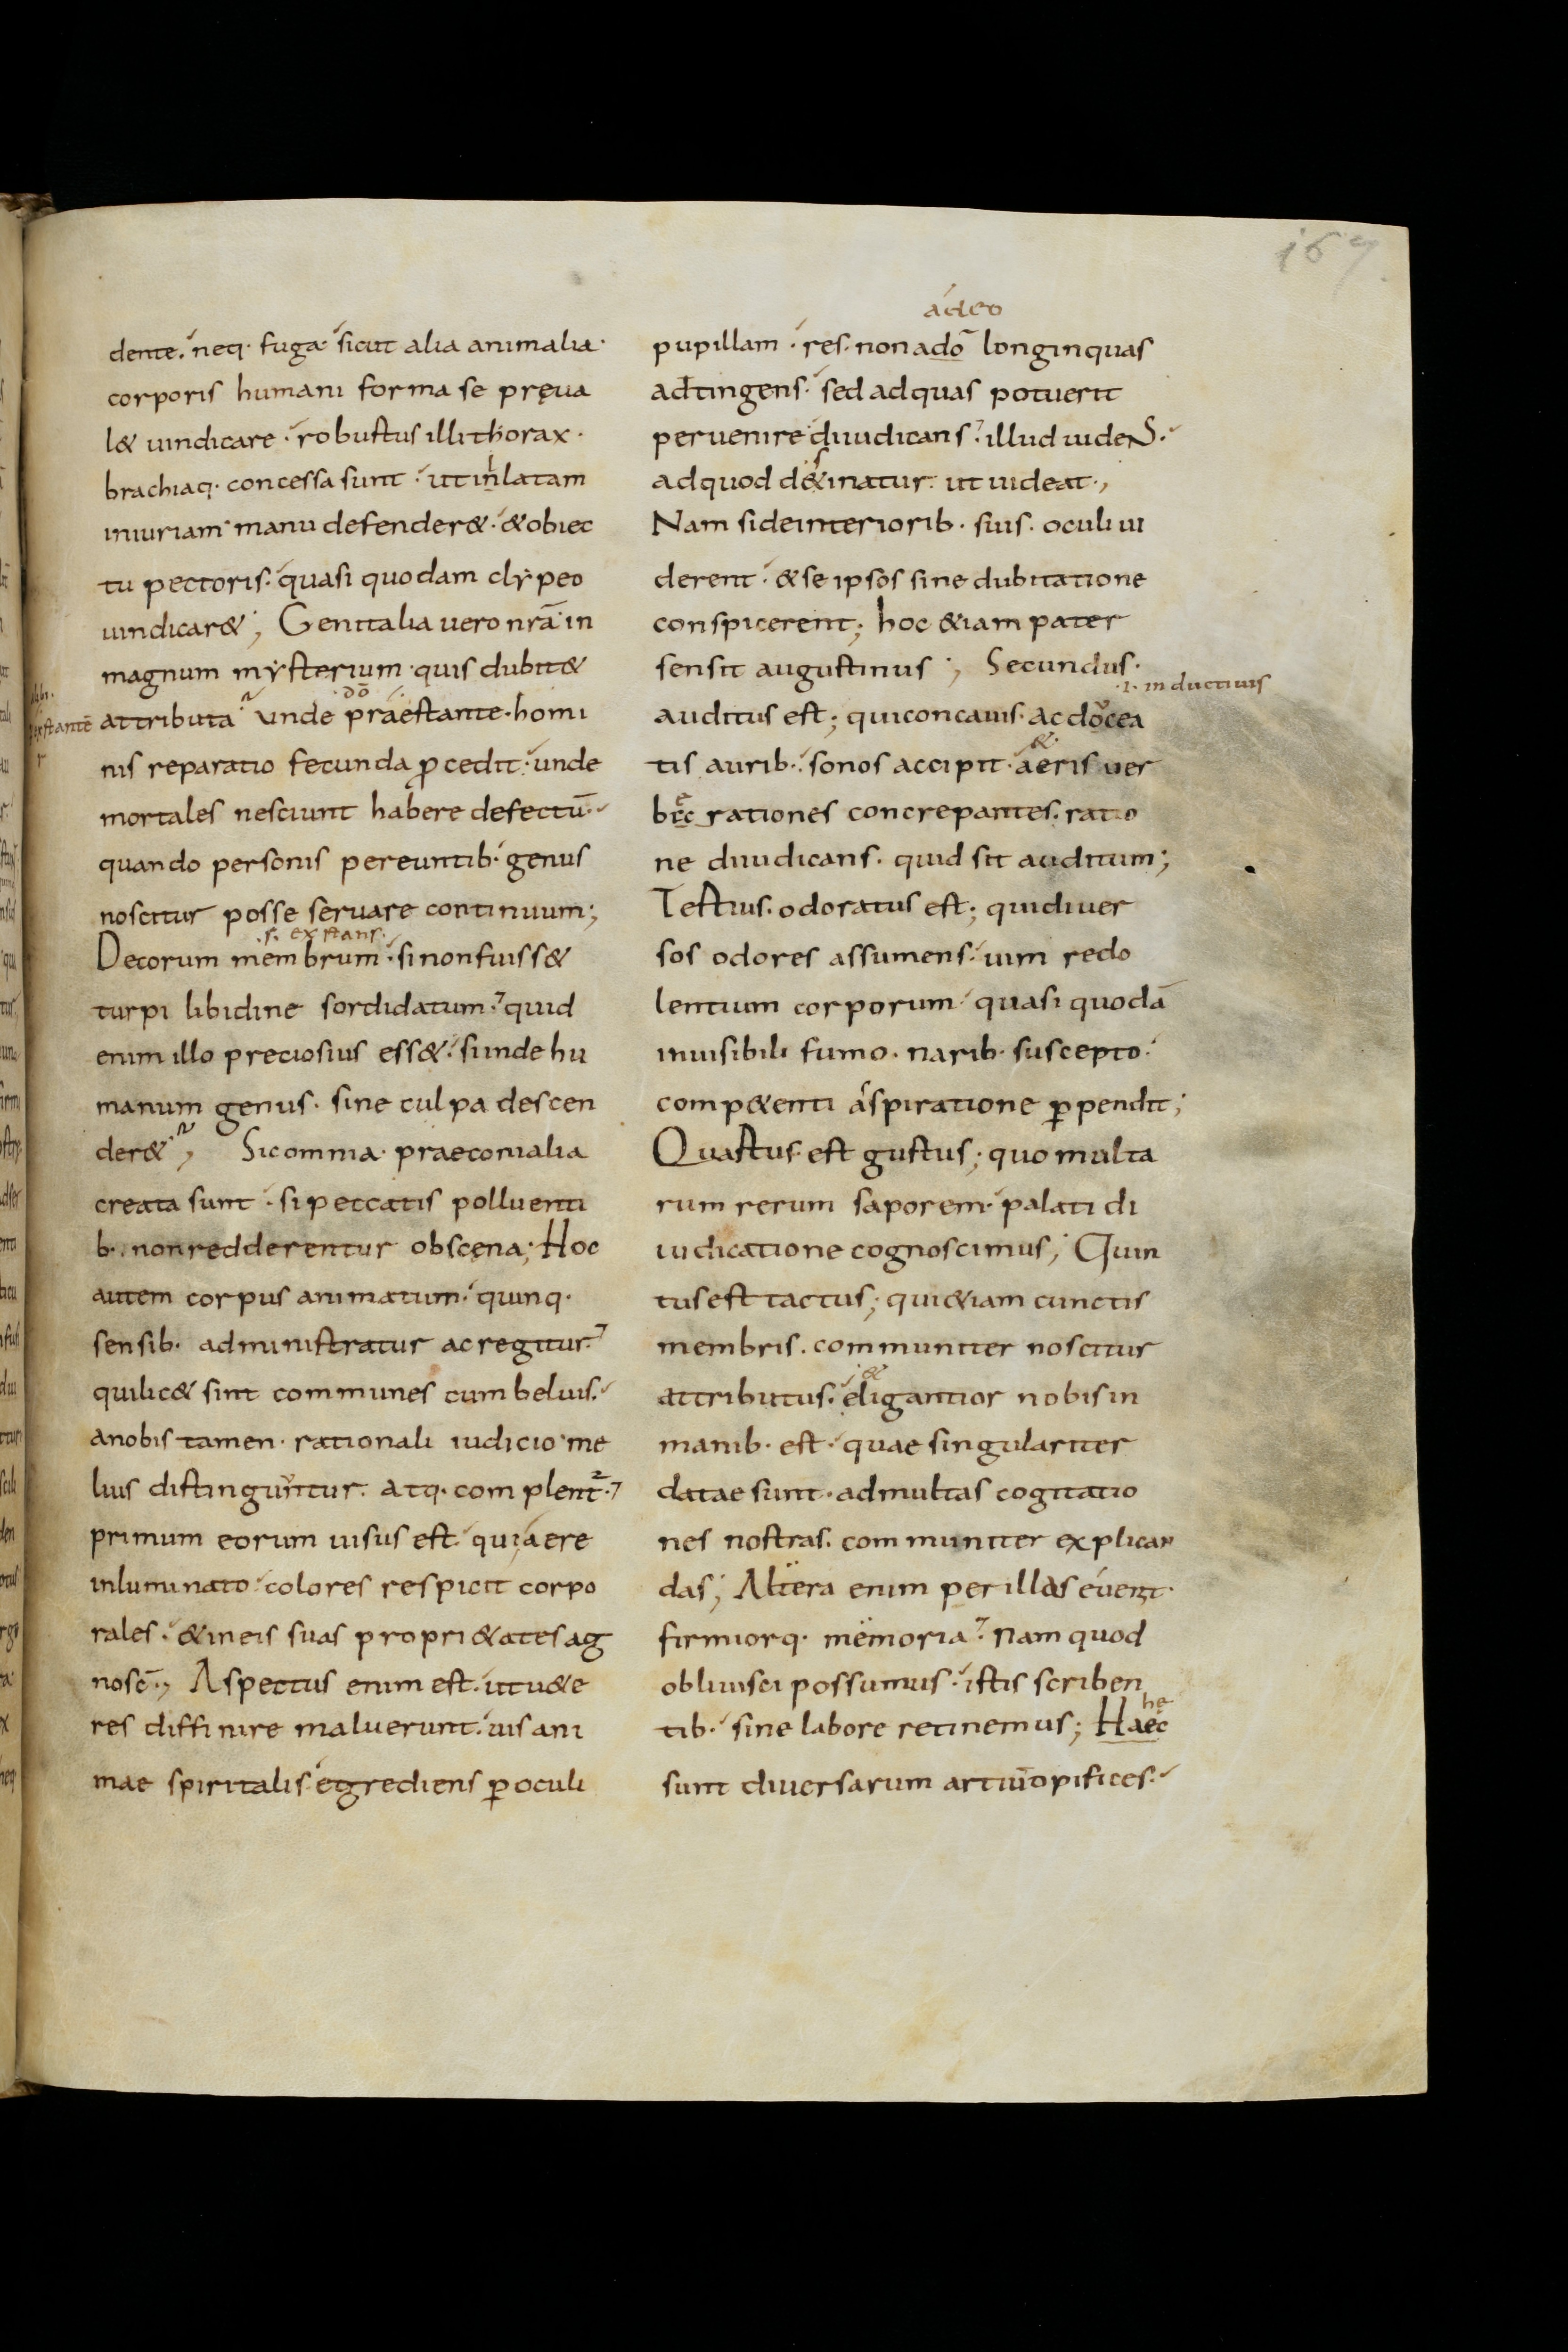 167
dente. neq· fuga· sicut alia animalia·
corporis humani forma se pręua
l& uindicare· robustus illi thorax·
brachiaq· concessa sunt· ut inlatam
iniuriam· manu defender&· &obiec
tu pectoris· quasi quodam clẏpeo
uindicar&; Genitalia uero nr̄a in
magnum mẏsterium· quis dubit&
dō
attributa unde praestante· homi
nis reparatio fecunda ꝓcedit· unde
mortales nesciunt habere defectū·
quando personis pereuntib· genus
noscitur posse seruare continuum;
·s· exstans·
Decorum membrum· si non fuiss&
turpi libidine sordidatum· quid
enim illo preciosius ess&· si inde hu
manum genus· sine culpa descen
der&; Sic omnia· praeconialia
creata sunt· si peccatis polluenti
b· non redderentur obscena; Hoc
autem corpus animatum· quinq·
sensib· administratur ac regitur·
qui lic& sint communes cum beluis·
a nobis tamen· rationali iudicio· me
lius distinguntur· atq· complent·
primum eorum uisus est· qui aere
inluminato· colores respicit corpo
rales· & in eis suas propri&ates ag
nosc̄·, Aspectus enim est· ut u&e
res diffinire maluerunt· uis ani
mae spiritalis· egrediens ꝑ oculi
adeo
pupillam· res· non ado longinquas
adtingens· sed ad quas potuerit
peruenire diiudicans· illud uideNS·
ad quod d&inatur· ut uideat·,
Nam si de interiorib· suis· oculi ui
derent· & se ipsos sine dubitatione
conspicerent; hoc &iam pater
sensit augustinus; Secundus·
·i· inductiuis
auditus est; qui concauis· ac docea
&·
tis aurib· sonos accipit· aeris uer
bęc rationes concrepantes· ratio
ne diiudicans· quid sit auditum;
Testius· odoratus est; qui diuer
sos odores assumens· uim redo
lentium corporum· quasi quodā
inuisibili fumo· narib· suscepto·
comp&enti aspiratione ꝑpendit;
Quastus· est gustus; quo multa
rum rerum saporem· palati di
iudicatione cognoscimus; Quin
tus est tactus; qui &iam cunctis
membris· communiter noscitur
&
attributus· eligantior nobis in
manib· est· quae singulariter
datae sunt· ad multas cogitatio
nes nostras· communiter explican
das; Altera enim per illas euent·
firmiorq· memoria· Nam quod
obliuisci possumus· istis scriben
he
tib· sine labore retinemus; Haec
sunt diuersarum artiū opifices·